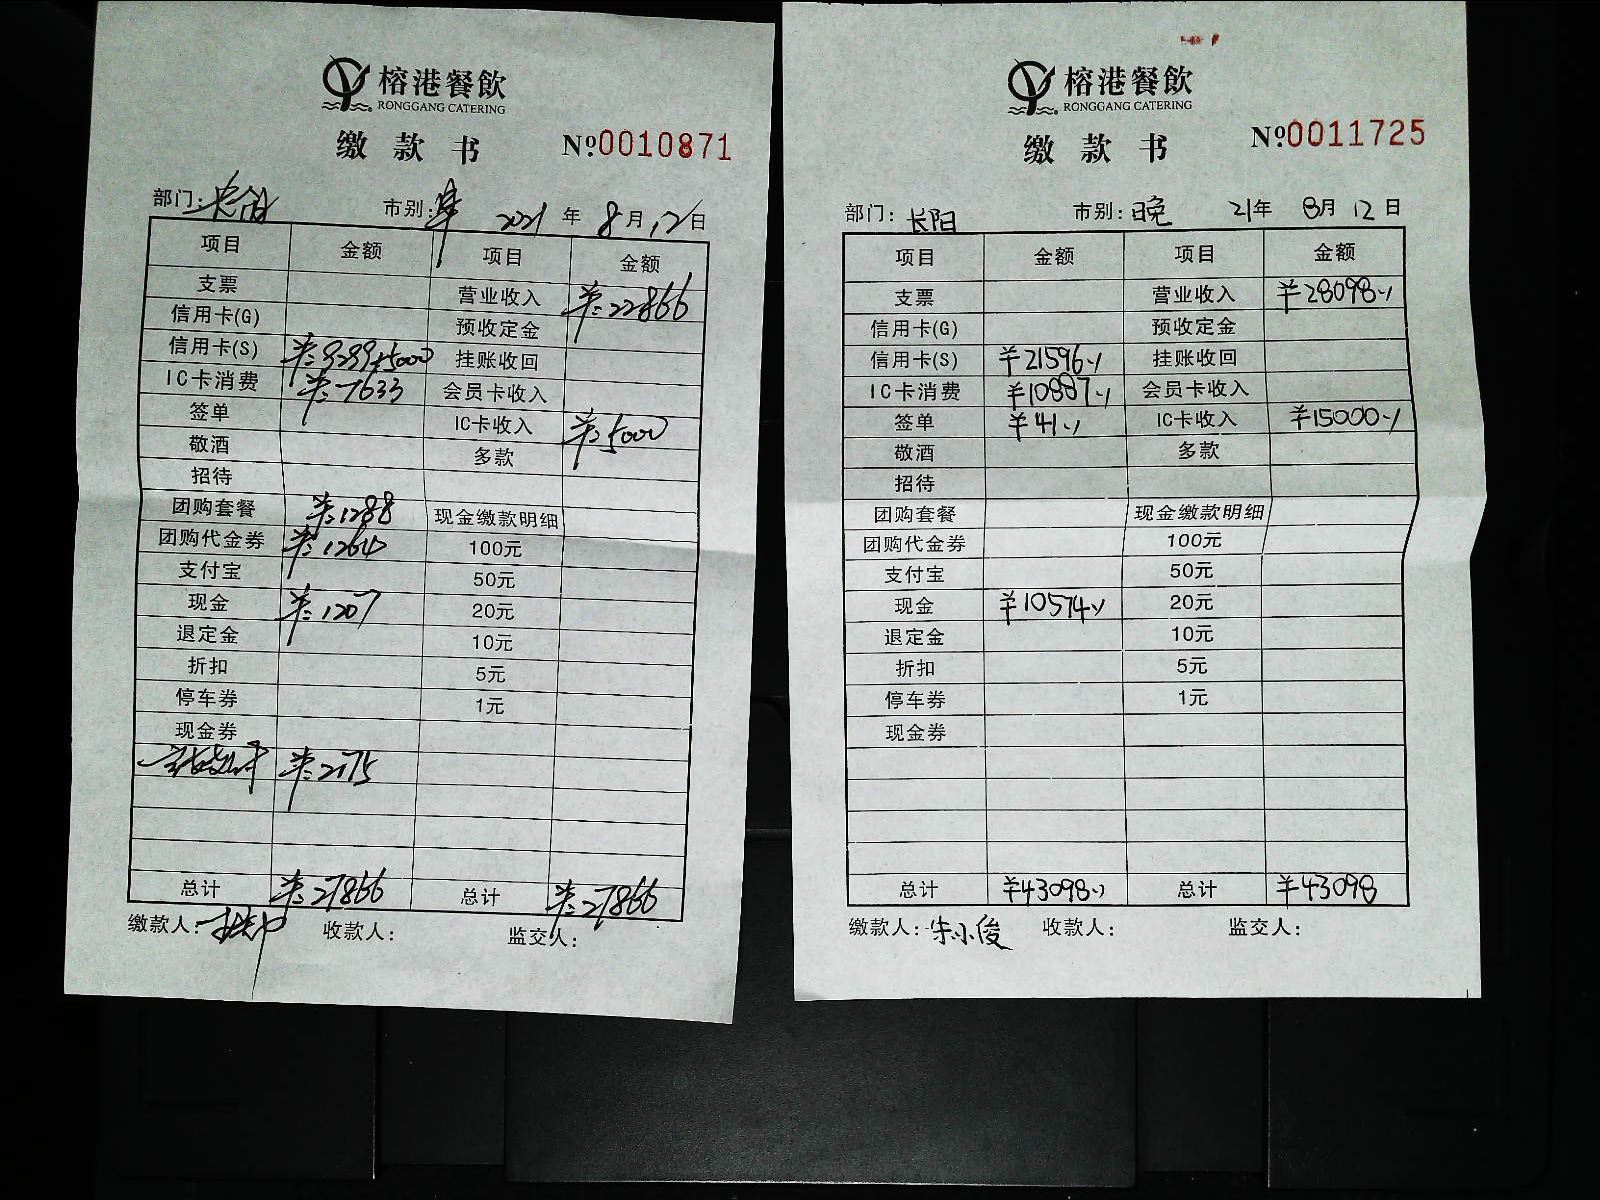 榕港餐飲
RONGGANG CATERING
缴款书 №0010871
部门: 市别: 2021年8月12日
项目 金额 项目 金额
支票 营业收入 ¥:22866
信用卡(G) 预收定金
信用卡(S) ¥:9299+5000 挂账收回
IC卡消费 ¥:7633 会员卡收入
签单 IC卡收入 ¥:5000
敬酒 多款
招待
团购套餐 ¥:1288 现金缴款明细
团购代金券 ¥:1264 100元
支付宝 50元
现金 ¥:1207 20元
退定金 10元
折扣 5元
停车券 1元
现金券
¥:2175
总计 ¥:27866 总计 ¥:27866
缴款人: 收款人: 监交人:
榕港餐飲
RONGGANG CATERING
缴款书 №0011725
部门: 长阳 市别: 晚 21年8月12日
项目 金额 项目 金额
支票 营业收入 ¥28098
信用卡(G) 预收定金
信用卡(S) ¥21596 挂账收回
IC卡消费 ¥10887 会员卡收入
签单 ¥41 IC卡收入 ¥15000
敬酒 多款
招待
团购套餐 现金缴款明细
团购代金券 100元
支付宝 50元
现金 ¥10574 20元
退定金 10元
折扣 5元
停车券 1元
现金券
总计 ¥43098 总计 ¥43098
缴款人: 朱小俊 收款人: 监交人: